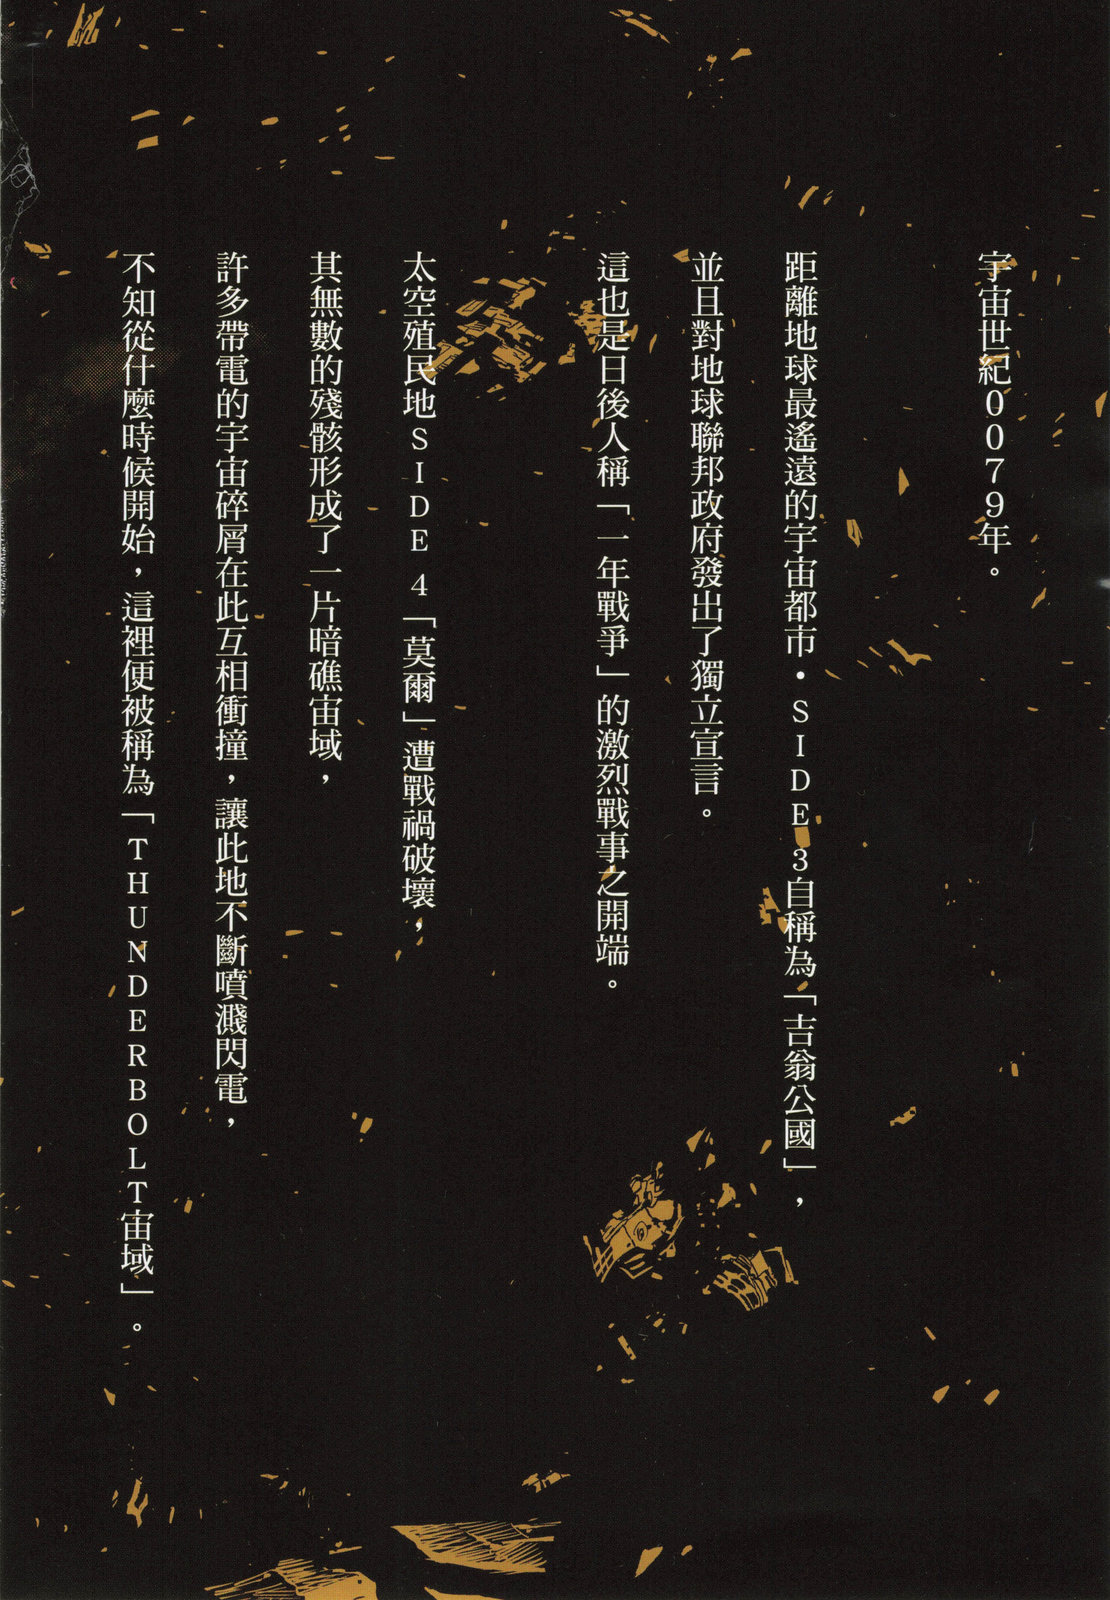 宇宙世紀0079年。
距離地球最遙遠的宇宙都市・SIDE 3自稱為「吉翁公國」，
並且對地球聯邦政府發出了獨立宣言。
這也是日後人稱「一年戰爭」的激烈戰事之開端。
太空殖民地SIDE 4「莫爾」遭戰禍破壞，
其無數的殘骸形成了一片暗礁宙域，
許多帶電的宇宙碎屑在此互相衝撞，讓此地不斷噴濺閃電，
不知從什麼時候開始，這裡便被稱為「THUNDERBOLT宙域」。